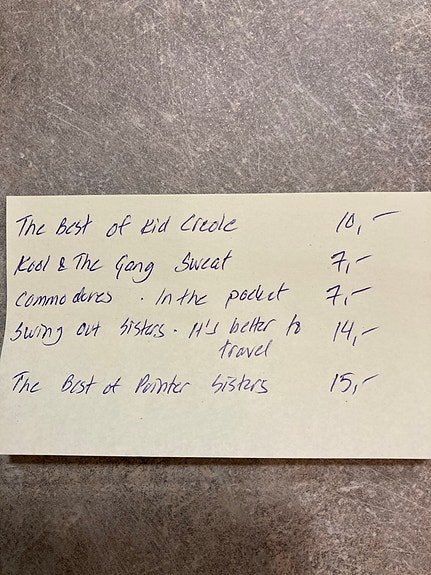 The Best of Kid Creole 10,-
Kool & The Gang Sweat 7,-
Commodores - In the pocket 7,-
Swing out Sisters - It's better to 14,-
travel
The Best of Pointer Sisters 15,-